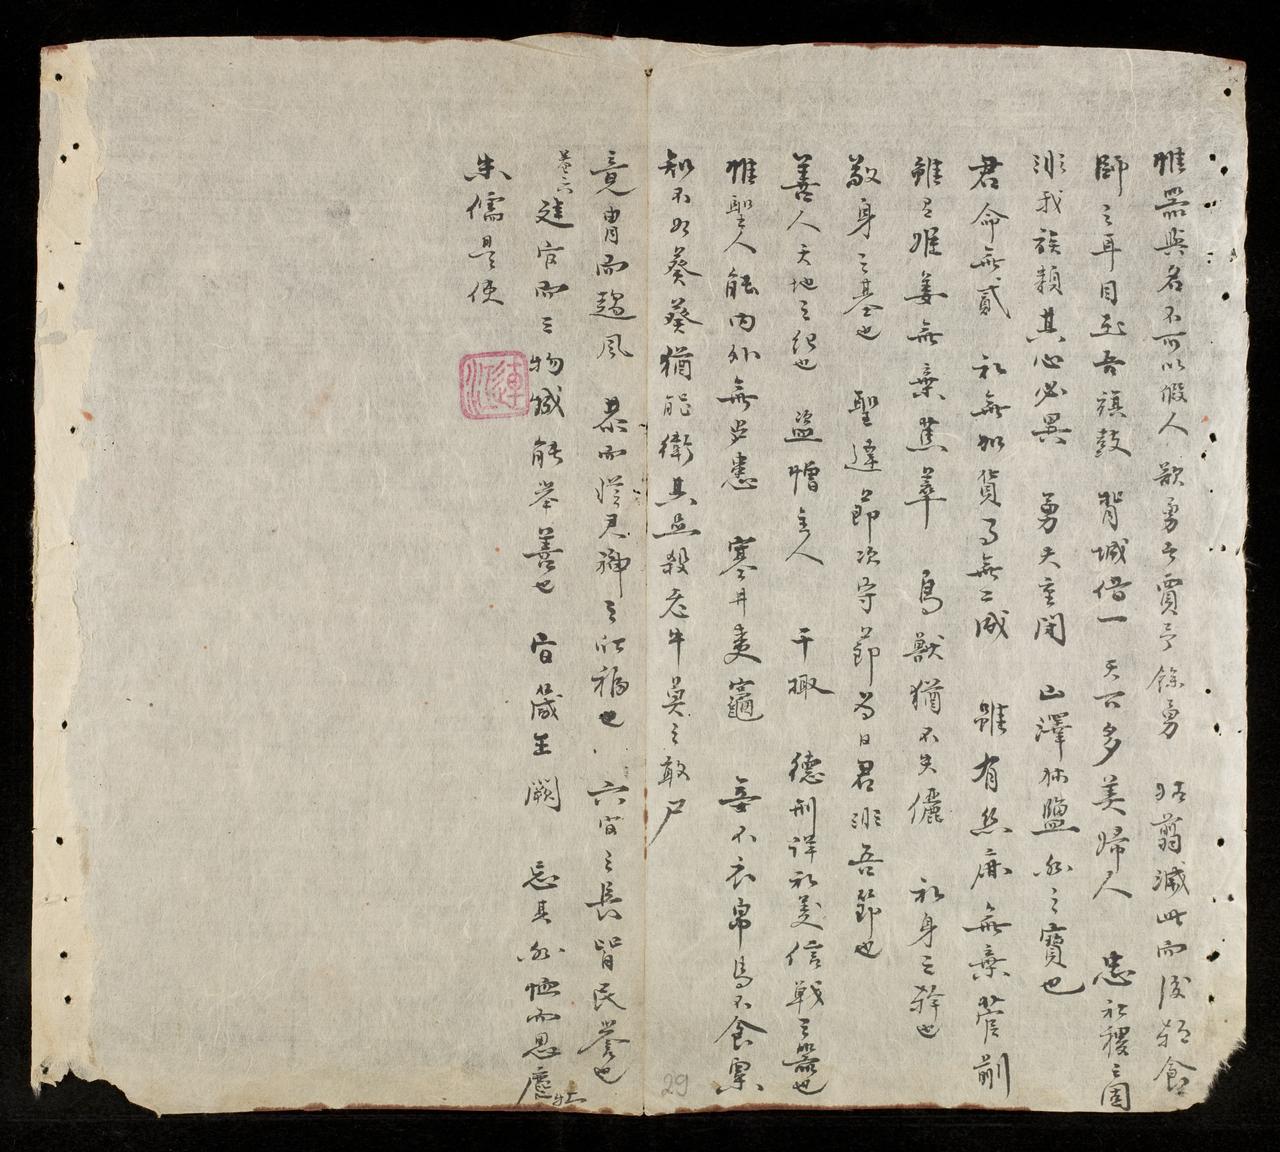 惟器與名不可以假人 欲勇者賈予餘勇 姑翦滅此而後朝食
師之耳目在吾旗鼓 背城借一 天下多美婦人 忠社稷之固
非我族類其心必異 勇夫重閉 山澤林鹽國之寶也
君命無貳 礼無加貨事無二成 雖有絲麻無棄菅蒯
雖有姬姜無棄蕉萃 鳥獸猶不失儷 礼身之幹也
敬身之基也 聖達節次守節為曰君非吾節也
善人天地之紀也 盜憎主人 干掫 德刑詳礼義信戰之器也
惟聖人能內外無患 塞井夷竈 妾不衣帛馬不食粟
知不如葵葵猶能衛其足 殺老牛莫之敢尸
免冑而趨風 恭而從君神之所福也 六官之長皆民譽也
建官而三物成能举善也 官箴王闕 忘其國恤而思麀牡
朱儒是使
29